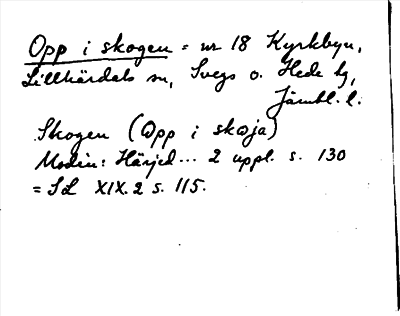 Opp i skogen = nr 18 Kyrkbyn,
Lillhärdals sn, Svegs o. Hede tg,
Jämtl. l.
Skogen (Opp i skoja)
Modin: Härjed... 2 uppl. s. 130
= SL XIX. 2 s. 115.